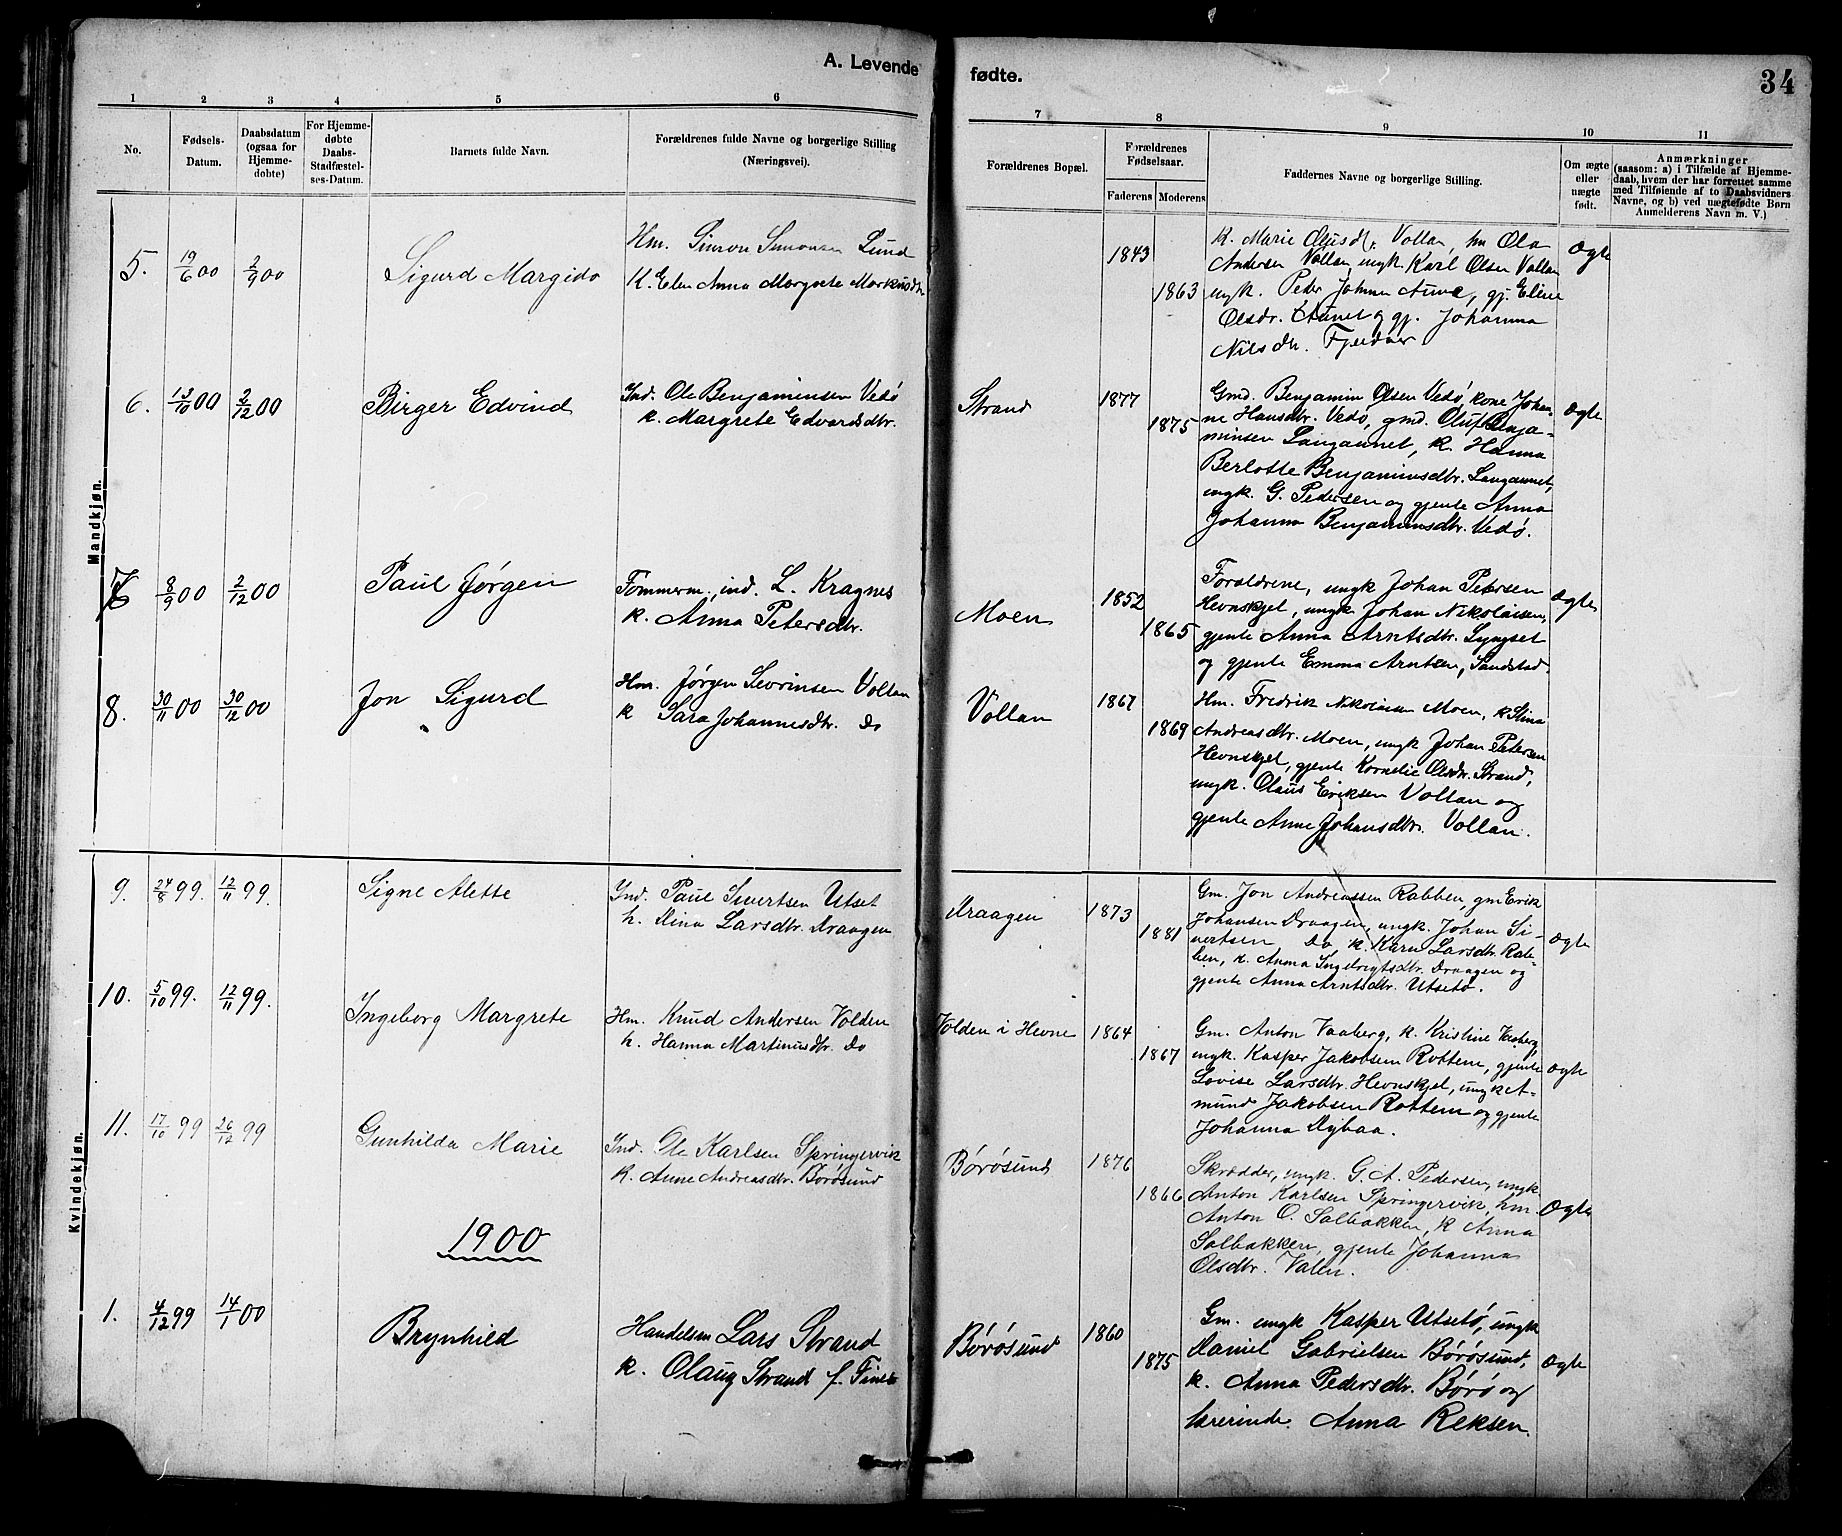 A. Levende
fødte.
34
1 2 3 4 5 6
7 8 9 10 11
No.
Fødsels-
Datum.
Daabsdatum
(ogsaa for
Hjemme-
døbte)
For Hjemme-
døbte
Daabs-
Stadfæstel-
ses-Datum.
Barnets fulde Navn.
Forældrenes fulde Navne og borgerlige Stilling
(Næringsvei).
Forældrenes Bopæl.
Forældrenes
Fødselsaar.
Faderens Moderens
Faddernes Navne og borgerlige Stilling.
Om ægte
eller
nægte
født.
Anmærkninger
(saasom: a) i Tilfælde af Hjemme-
daab, hvem der har forrettet samme
med Tilføiende af to Daabsvidners
Navne, og b) ved uægtefødte Børn
Anmelderens Navn m. V.)
Mandkjøn.
5. 19/6 00 2/9 00
Sigurd Margido
Hm. Simon Simonsen Lund
K. Elen Anna Margrete Markusdtr
1843
1863
K. Marie Olausd. Vollan, hm Ola
Andersen Vollan, ungk Karl Olsen Vollan
ungk. Peder Johnsen Aune, gj. Eline
Olsdr. Aunet og gj. Johanna
Nilsdtr. Fjeldvær
Ægte
6. 13/10 00 2/12 00
Birger Edvind
Ind. Ole Benjaminsen Vedø
k. Margrete Edvardsdtr.
Strand
1877
1875
Gmd. Benjamin Olsen Vedø, kone Johan-
ne Hansdtr. Vedø, gmd. Oluf Benja-
minsen Langaunet, k. Hanna
Berlotte Benjaminsdtr. Langaunet,
ungk. G. Pedersen og gjente Anna
Johanna Benjaminsdtr. Vedø.
Ægte
7 8/9 00 2/12 00
Paul Jørgen
Tømmerm., ind. L. Kragnes
k. Anna Petersdtr.
Moen
1852
1865
Forældrene, ungk Johan Petersen
Hevnskjel, ungk Johan Nikolaisen,
gjente Anna Arntsdtr. Lyngset
og gjente Emma Arntsen, Sandstad.
Ægte
8. 30/11 00 30/12 00
Jon Sigurd
Hm. Jørgen Sevrinsen Vollan
k Sara Johannesdtr. Do
Vollan
1867
1869
Hm. Fredrik Nikolaisen Moen, k Stina
Andreasdtr. Moen, ungk Johan Petersen
Hevnskjel, gjente Kornelie Olsdtr. Strand,
ungk. Olaus Eriksen Vollan og
gjente Anne Johansdtr. Vollan.
Kvindekjøn.
9. 24/8 99. 12/11 99.
Signe Alette
Ind. Paul Sivertsen Utset
h. Dina Larsdtr. Draagen
Draagen
1873
1881
Gm. Jon Andreassen Rabben, gm Erik
Johansen Draagen, ungk. Johan Si-
vertsen Do, k. Karen Larsdtr. Rab-
ben, k. Anna Ingebrigtsdtr. Draagen og
gjente Anna Arntsdtr. Utsetø.
Ægte
10. 5/10 99. 12/11 99.
Ingeborg Margrete
Hm. Knud Andersen Volden
h. Hanna Martinusdtr. Do
Volden i Hevne
1864
1867
Gm. Anton Vaaberg, k. Kristine Vaaberg,
ungk. Kasper Jakobsen Rottem, gjente
Lovise Larsdtr. Hevnskjel, ungk A-
mund Jakobsen Rottem og gjente
Johanna Dybaa.
Ægte
11. 17/10 99 26/12 99
Gunhilda Marie
Ind. Ole Karlsen Springervik
k. Anne Andreasdtr. Børøsund
Børøsund
1876
1866
Skrædder, ungk. G. A. Pedersen, ungk
Anton Karlsen Springervik, hm.
Anton O. Solbakken, k Anna
Solbakken, gjente Johanna
Olsdtr. Valen.
Ægte
1900
1. 4/12 99 14/1 00
Brynhild
Handelsm Lars Strand
k. Olaug Strand f.
Børøsund
1860
1875
Gm. ungk Kasper Utsetø, ungk
Daniel Gabrielsen Børøsund,
k. Anna Pedersdtr. Børø og
lærerinde Anna Reksen.
Ægte